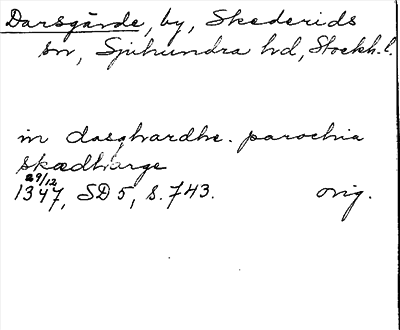 Darsgärde, by, Skederids
sn, Sjuhundra hd, Stockh. l.
in dasghardhe. parochia
skædhærge
29/12
1347, SD 5, s. 743. orig.